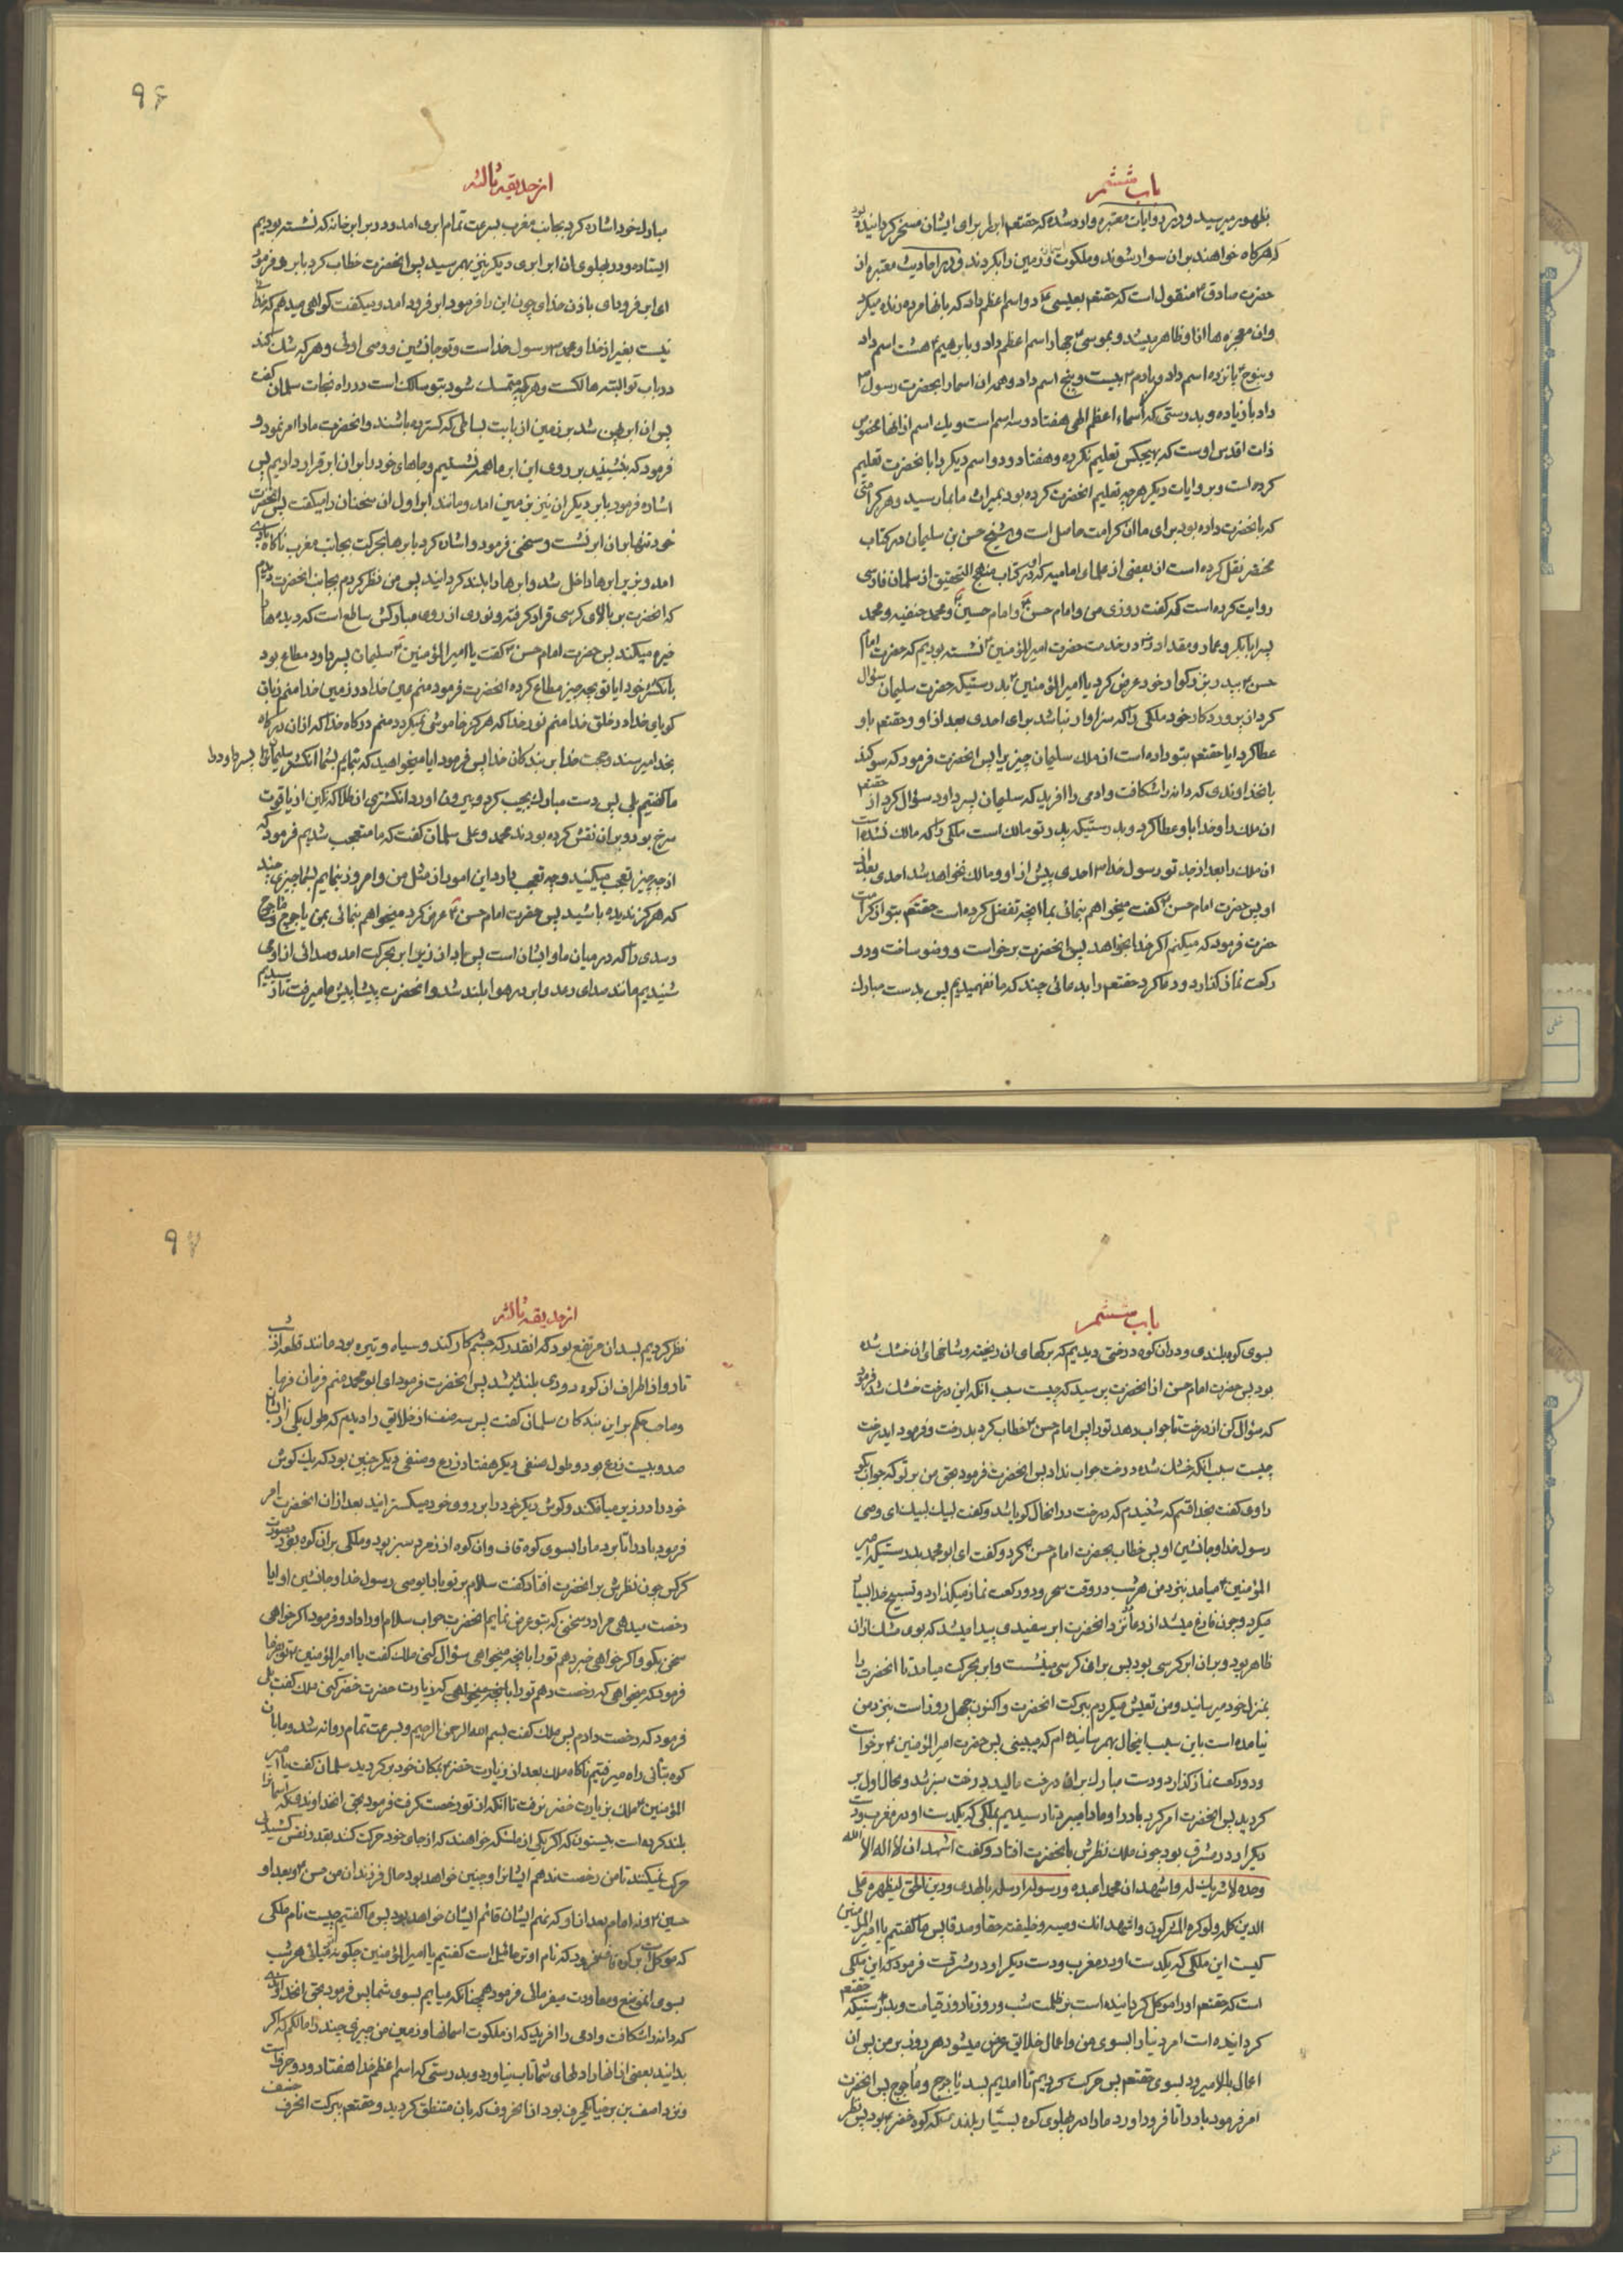 باب ششم
بظهور میرسید و در روایات معتبره وارد شده که حقتعم ابر را برای ایشان مسخر کردانیده بود
که هرکاه خواهند بران سوار شوند و ملکوت اسمان و زمین را بکردند و در احادیث معتبره از
حضرت صادق ۴ منقول است که حقتعم بعیسی ۴ دو اسم اعظم داد که بانها مرده زنده میکرد
وان معجزه ها از او ظاهر میشد و بموسی ۴ چهار اسم اعظم داد و بابرهیم ۴ هشت اسم داد
و بنوح ۴ پانزده اسم داد و بادم ۴ بیست و پنج اسم داد و همه ان اسما را بحضرت رسول ۳
داد با زیاده و بدرستی که اسماء اعظم الهی هفتاد و سه اسم است و یک اسم از انها مخصوص
ذات اقدس اوست که بهیچکس تعلیم نکرده و هفتاد و دو اسم دیکر را بانحضرت تعلیم
کرده است و بروایات دیکر هرچه تعلیم انحضرت کرده بود بمیراث ما بما رسید و هر کرامتی
که بانحضرت داده بود برای ما ان کرامت حاصل است و شیخ حسن بن سلیمان در کتاب
مختصر نقل کرده است از بعضی از علمای امامیه که او در کتاب منهج التحقیق از سلمان فارسی
روایت کرده است که کفت روزی من و امام حسن ۴ و امام حسین ۴ و محمد حنفیه و محمد
پسر ابابکر و عمار و مقداد در خدمت حضرت امیرالمؤمنین ۴ نشسته بودیم که حضرت امام
حسن ۴ بپدر بزرکوار خود عرض کرد یا امیرالمؤمنین ۴ بدرستیکه حضرت سلیمان سؤال
کرد از پروردکار خود ملکی را که سزاوار نباشد برای احدی بعد از او و حقتعم باو
عطا کرد ایا حقتعم بتو داده است از ملک سلیمان چیزیرا پس انحضرت فرمود که سوکند
یاد میکنم بانخداوندی که دانه را شکافت و ادمی را افرید که سلیمان پسر داود سؤال کرد از حقتعم
ان ملک را و خدا باو عطا کرد و بدرستیکه پدر تو مالک است ملکی را که مالک نشده است
ان ملک را بعد از جد تو رسول خدا ۳ احدی پیش از او و مالک نخواهد شد احدی بعد از
او پس حضرت امام حسن ۴ کفت میخواهم بنمائی بما انچه تفضل کرده است حقتعم بتو از کرامت
حضرت فرمود که میکنم اکر خدا بخواهد پس انحضرت برخواست و وضو ساخت و دو
رکعت نماز کذارد و دعا کرد حقتعم را بدعائی چند که ما نفهمیدیم پس بدست مبارک
۹۶
از حدیقه ثالثه
مبارک خود اشاره کرد بجانب مغرب بسرعت تمام ابری امد و در برابر خانه که نشسته بودیم
ایستاد و در پهلوی ان ابر ابری دیکر نیز بهم رسید پس انحضرت خطاب کرد بابر و فرمود
ای ابر فرود ای باذن خدای چون این را فرمود ابر فرود امد و میکفت کواهی میدهم که خدائی
نیست بغیر از خدا و محمد ۳ رسول خداست و تو جانشین و وصی اوئی و هر که شک کند
در باب تو البته هالکست و هر که متمسک شود بتو سالک است در راه نجات سلمان کفت
پس ان ابر پهن شد بر زمین از بابت بساطی که کسترده باشند و انحضرت ما را امر نمود و
فرمود که بنشینید بر روی این ابر ما همه نشستیم و جاهای خود را بر ان ابر قرار دادیم پس
اشاره فرمود بابر دیکر ان نیز بزمین امد و مانند ابر اول ان سخنان را میکفت پس انحضرت
خود تنها بران ابر نشست و سخنی فرمود و اشاره کرد بابرها بحرکت بجانب مغرب ناکاه بادی
امد و بزیر ابرها داخل شد و ابرها را بلند کردانید پس من نظر کردم بجانب انحضرت دیدم
که انحضرت بر بالای کرسی قرار کرفته و نوری از روی مبارکش ساطع است که دیده ها را
خیره میکند پس حضرت امام حسن ۴ کفت یا امیرالمؤمنین ۴ سلیمان پسر داود مطاع بود
بانکشتر خود ایا تو بچه چیز مطاع کرده انحضرت فرمود منم عین خدا در زمین خدا منم زبان
کویای خدا در خلق خدا منم نور خدا که هرکز خاموشی نمیکردد منم درکاه خدا که از ان درکاه
بخدا میرسند و حجت خدا بر بندکان خدا پس فرمود ایا میخواهید که بنمایم بشما انکشتر سلیمان پسر داود را
ما کفتیم بلی پس دست مبارک بجیب کرد و بیرون اورد انکشتری از طلا که نکین از یاقوت
سرخ بود و بران نقش کرده بودند محمد و علی سلمان کفت که ما متعجب شدیم فرمود که
از چه چیز تعجب میکنید و چه تعجب دارد این امور از مثل من و امروز بنمایم بشما چیزی چند
که هرکز ندیده باشید پس حضرت امام حسن ۴ عرض کرد میخواهم بنمائی بمن یاجوج و ماجوج
و سدی را که در میان ما و ایشان است پس باد از زیر ابر بحرکت امد و صدائی از او می
شنیدیم مانند صدای رعد و ابر در هوا بلند شد و انحضرت پیشاپیش ما میرفت تا رسیدیم
باب ششم
بسوی کوه بلندی و دران کوه درختی دیدیم که برکهای ان ریخته و شاخهای ان خشک شده
بود پس حضرت امام حسن از انحضرت پرسید که چیست سبب انکه این درخت خشک شد فرمود
که سؤال کن از درخت تا جواب دهد تو را پس امام حسن ۴ خطاب کرد بدرخت و فرمود ایدرخت
چیست سبب انکه خشک شده درخت جواب نداد پس انحضرت فرمود بحق من بر تو که جواب بکو
راوی کفت بخدا قسم که شنیدم که درخت در انحال کویا شد و کفت لبیک لبیک ای وصی
رسول خدا و جانشین او پس خطاب بحضرت امام حسن ۴ کرد و کفت ای ابو محمد بدرستیکه امیر
المؤمنین ۴ میامد بنزد من هر شب در وقت سحر و دو رکعت نماز میکذارد و تسبیح خدا بسیار
میکرد و چون فارغ میشد از دعا نزد انحضرت ابر سفیدی پیدا میشد که بوی مشک از ان
ظاهر بود و بران ابر کرسی بود پس بران کرسی مینشست و ابر بحرکت میامد تا انحضرت را
بمنزل خود میرسانید و من تعیش میکردم ببرکت انحضرت و اکنون چهل روز است بنزد من
نیامده است باین سبب اینحال بهم رسانیده ام که میبینی پس حضرت امیرالمؤمنین ۴ برخواست
و دو رکعت نماز کذارد و دست مبارک بران درخت مالید درخت سبز شد و بحال اول بر
کردید پس انحضرت امر کرد باد را و ما را میبرد تا رسیدیم بملکی که یکدست او در مغرب بود
دیکر او در مشرق بود چون ملک نظرش بانحضرت افتاد و کفت اشهد ان لا اله الا الله
وحده لا شریک له و اشهد ان محمدا عبده و رسوله ارسله بالهدی و دین الحق لیظهره علی
الدین کله ولو کره المشرکون و اشهد انک وصیه و خلیفته حقا و صدقا پس ما کفتیم یا امیرالمؤمنین
کیست این ملکی که یکدست او در مغرب و دست دیکر او در مشرقست فرمود که این ملکی
است که حقتعم او را موکل کردانیده است بر ظلمت شب و روز تا روز قیامت و بدرستیکه حقتعم
کردانیده است امر دنیا را بسوی من و اعمال خلایق عرض میشود هر روز بر من پس ان
اعمال بالا میرود بسوی حقتعم پس حرکت کردیم تا امدیم بسد یاجوج و ماجوج پس انحضرت
امر فرمود باد را تا فرود اورد ما را در پهلوی کوه بسیار بلند که کوه خضر ۴ بود پس نظر
۹۷
از حدیقه ثالثه
نظر کردیم بسد ان مرتفع بود که انقدر که چشم کار کند و سیاه و تیره بود مانند قطعه از شب
تار و از اطراف ان کوه دودی بلند میشد پس انحضرت فرمود ای ابو محمد منم فرمان فرما
و صاحب حکم بر این بندکان سلمان کفت پس سه صنف از خلایق را دیدیم که طول یکی از ایشان
صد و بیست ذرع بود و طول صنفی دیکر هفتاد ذرع و صنفی دیکر چنین بود که یک کوش
خود را در زیر میافکند و کوش دیکر خود را بر روی خود میکسترانید بعد از ان انحضرت امر
فرمود باد را تا برد ما را بسوی کوه قاف و ان کوه از زمرد سبز بود و ملکی بران کوه بود بصورت
کرکس چون نظرش بر انحضرت افتاد کفت سلام بر تو باد یا وصی رسول خدا و جانشین او ایا
رخصت میدهی مرا در سخنی که بتو عرض نمایم انحضرت جواب سلام او را داد و فرمود اکر خواهی
سخن بکو و اکر خواهی خبر دهم تو را بانچه میخواهی سؤال کنی ملک کفت یا امیرالمؤمنین ۴ تو بفرما
فرمود که میخواهی که رخصت دهم تو را بانچه میخواهی که زیارت حضرت خضر کنی ملک کفت بلی
فرمود که رخصت دادم پس ملک کفت بسم الله الرحمن الرحیم و بسرعت تمام روانه شد و ما بان
کوه بتأنی راه میرفتیم ناکاه ملک بعد از زیارت خضر ۴ بمکان خود برکردید سلمان کفت یا امیر
المؤمنین ۴ ملک بزیارت خضر نرفت تا انکه از تو رخصت کرفت فرمود بحق انخداوندی که اسمانرا
بلند کرده است بیستون که اکر یکی از ملئکه خواهند که از جای خود حرکت کنند بقدر نفس کشیدنی
حرکت نمیکنند تا من رخصت ندهم ایشانرا و چنین خواهد بود حال فرزندان من حسن ۴ و بعد او
حسین ۴ و نه امام بعد از او که نهم ایشان قائم ایشان خواهد بود پس ما کفتیم چیست نام ملکی
که موکل است بکوه قاف فرمود که نام او ترجائیل است کفتیم یا امیرالمؤمنین چکونه میائی هر شب
بسوی انموضع و معاودت میفرمائی فرمود همچنانکه میایم بسوی شما پس فرمود بحق انخداوندی
که دانه را شکافت و ادمی را افرید که از ملکوت اسمانها و زمین من چیزی چند را مالکم که اکر
بدانید بعضی از انها را دلهای شما تاب نیاورد و بدرستی که اسم اعظم خدا هفتاد و دو حرفست
و نزد اصف بن برخیا یکحرف بود از انحروف که بان متنطق کردید و حقتعم ببرکت انحرف خسف